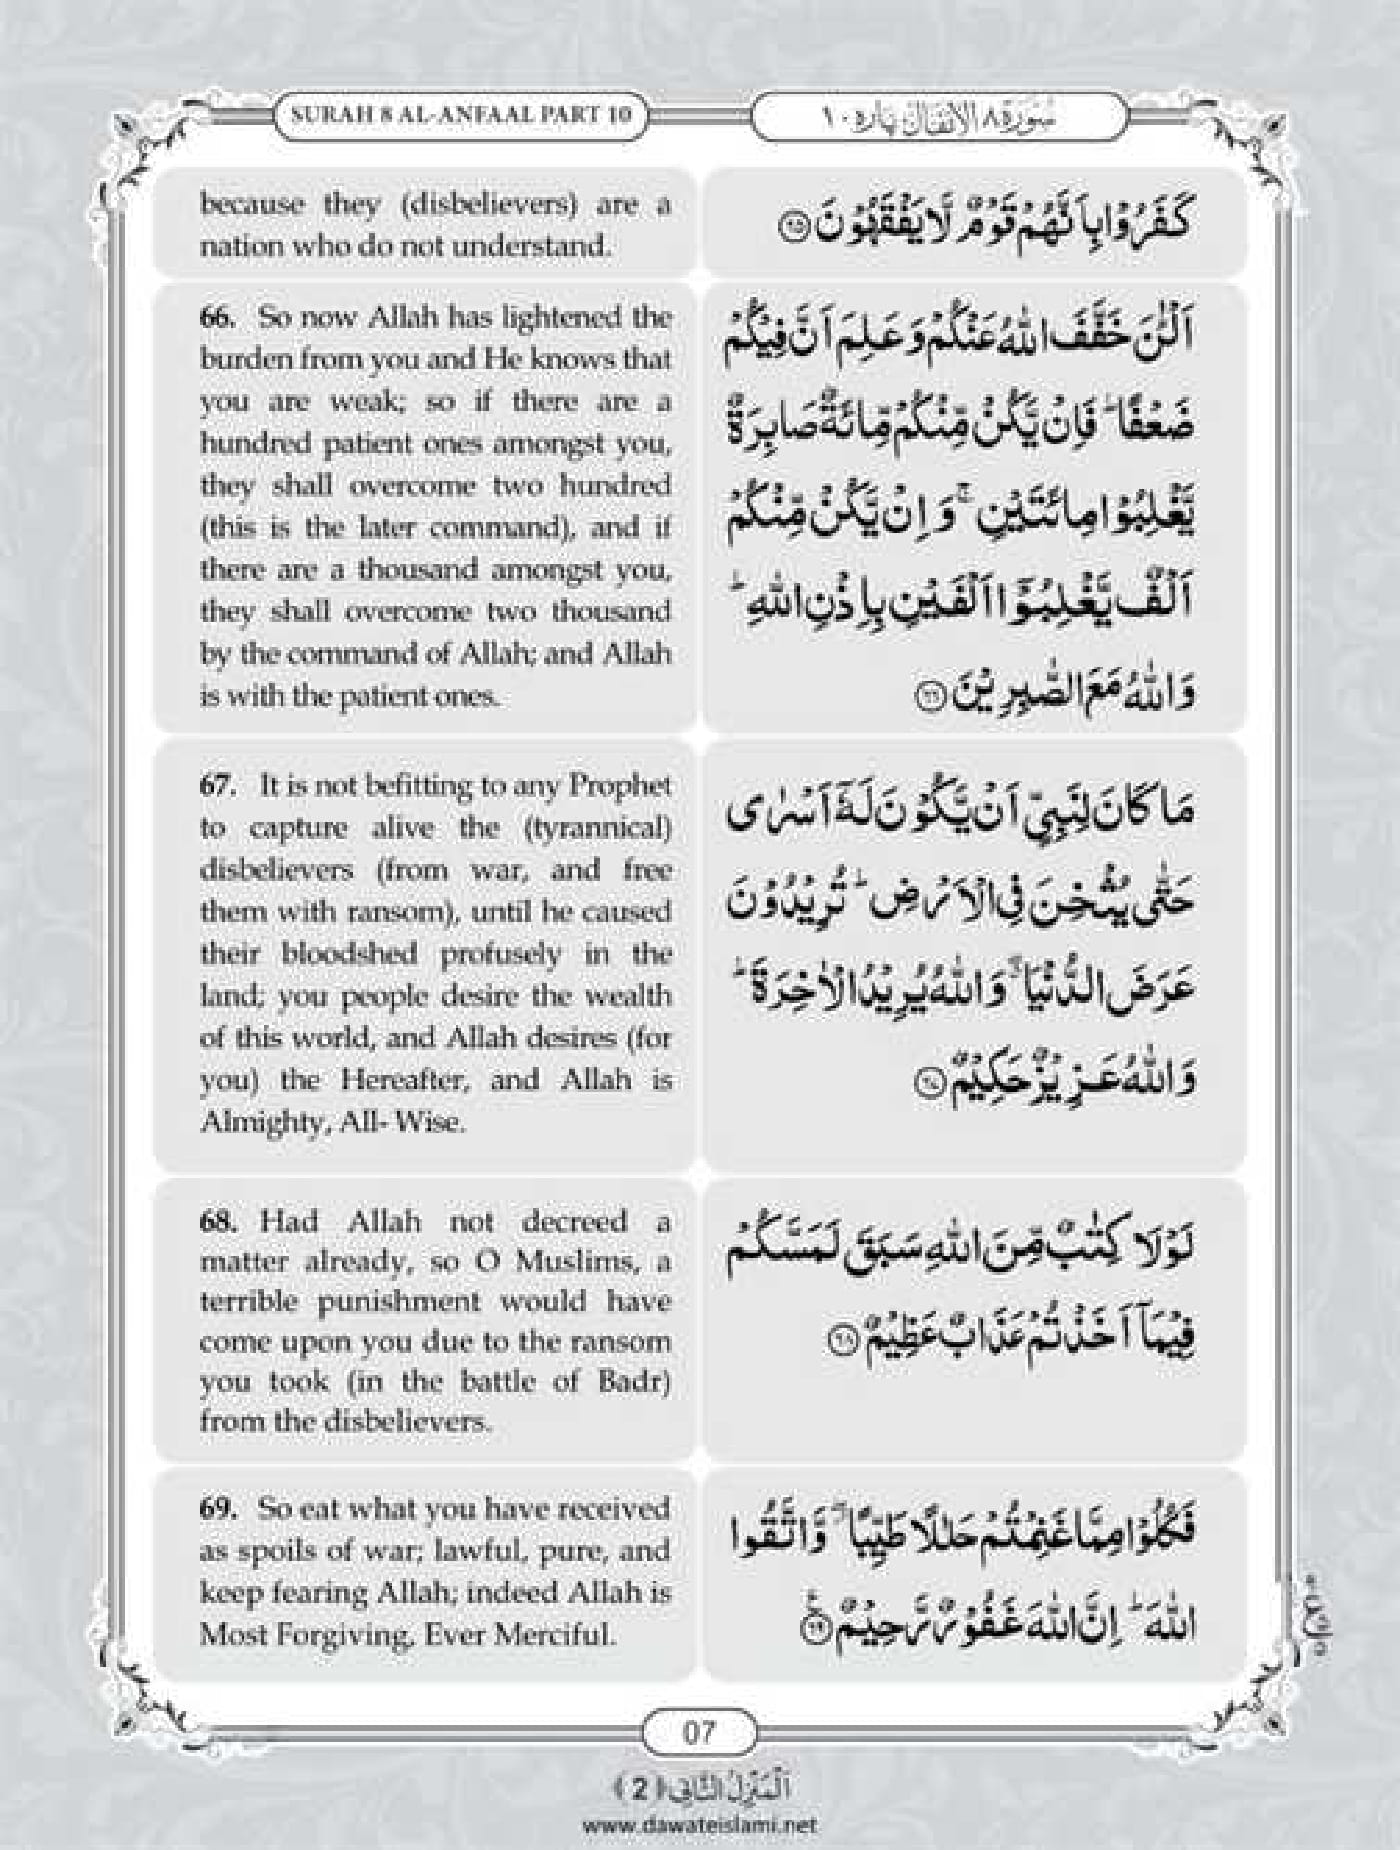 SURAH 8 AL-ANFAAL PART 10
سُوْرَةُ ٨ الْاَنْفَال پارہ ١٠
because they (disbelievers) are a
nation who do not understand.
كَفَرُوْا بِاَنَّهُمْ قَوْمٌ لَّا يَفْقَهُوْنَ ۝٦٥
66. So now Allah has lightened the
burden from you and He knows that
you are weak; so if there are a
hundred patient ones amongst you,
they shall overcome two hundred
(this is the later command), and if
there are a thousand amongst you,
they shall overcome two thousand
by the command of Allah; and Allah
is with the patient ones.
اَلْـٰٔنَ خَفَّفَ اللّٰهُ عَنْكُمْ وَ عَلِمَ اَنَّ فِيْكُمْ
ضَعْفًا ؕ فَاِنْ يَّكُنْ مِّنْكُمْ مِّائَةٌ صَابِرَةٌ
يَّغْلِبُوْا مِائَتَيْنِ ۚ وَ اِنْ يَّكُنْ مِّنْكُمْ
اَلْفٌ يَّغْلِبُوْۤا اَلْفَيْنِ بِاِذْنِ اللّٰهِ ؕ
وَ اللّٰهُ مَعَ الصّٰبِرِيْنَ ۝٦٦
67. It is not befitting to any Prophet
to capture alive the (tyrannical)
disbelievers (from war, and free
them with ransom), until he caused
their bloodshed profusely in the
land; you people desire the wealth
of this world, and Allah desires (for
you) the Hereafter, and Allah is
Almighty, All- Wise.
مَا كَانَ لِنَبِيٍّ اَنْ يَّكُوْنَ لَهٗۤ اَسْرٰى
حَتّٰى يُثْخِنَ فِي الْاَرْضِ ؕ تُرِيْدُوْنَ
عَرَضَ الدُّنْيَا ۖۗ وَ اللّٰهُ يُرِيْدُ الْاٰخِرَةَ ؕ
وَ اللّٰهُ عَزِيْزٌ حَكِيْمٌ ۝٦٧
68. Had Allah not decreed a
matter already, so O Muslims, a
terrible punishment would have
come upon you due to the ransom
you took (in the battle of Badr)
from the disbelievers.
لَوْ لَا كِتٰبٌ مِّنَ اللّٰهِ سَبَقَ لَمَسَّكُمْ
فِيْمَاۤ اَخَذْتُمْ عَذَابٌ عَظِيْمٌ ۝٦٨
69. So eat what you have received
as spoils of war; lawful, pure, and
keep fearing Allah; indeed Allah is
Most Forgiving, Ever Merciful.
فَكُلُوْا مِمَّا غَنِمْتُمْ حَلٰلًا طَيِّبًا ۖ وَّ اتَّقُوا
اللّٰهَ ؕ اِنَّ اللّٰهَ غَفُوْرٌ رَّحِيْمٌ ۝٦٩
07
اَلْمَنْزِلُ الثَّانِي ﴿2﴾
www.dawateislami.net